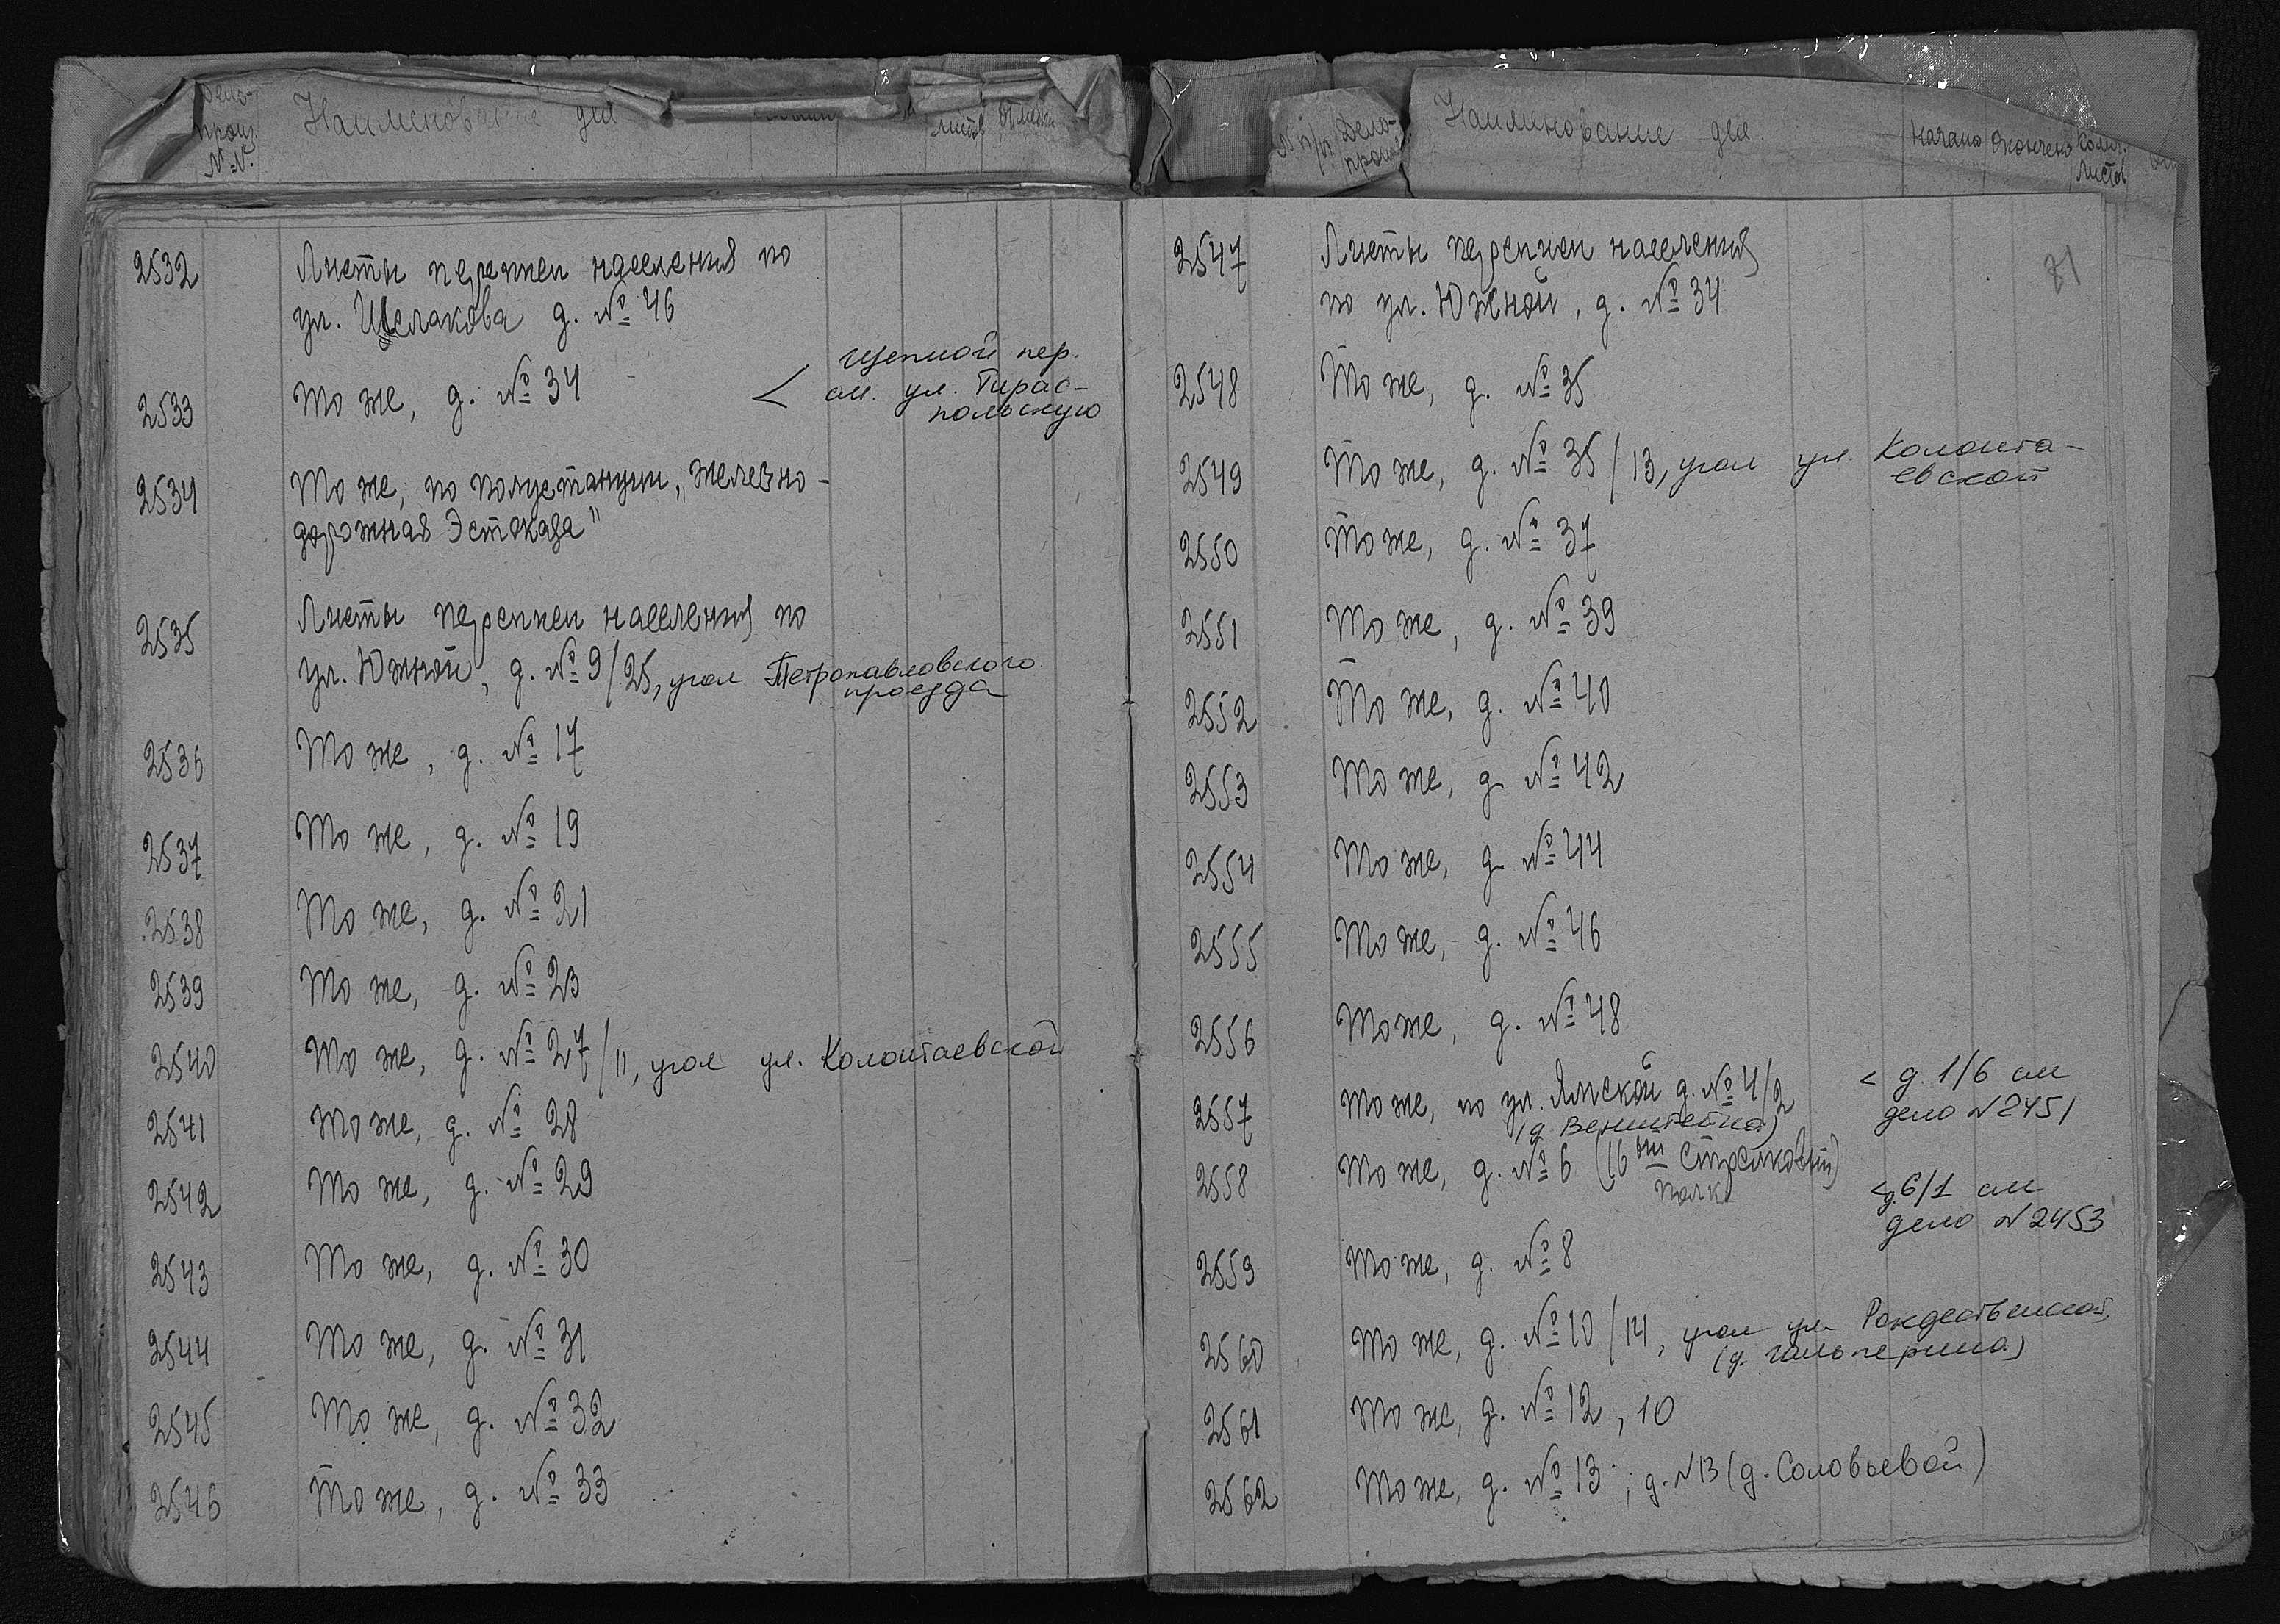 Дело-
произ.
№№
Наименование дел
листов
Отметки
2532
Листы переписи населения по
ул. Шслакова д. № 46
2533
То же, д. № 34
< Щепной пер.
см. ул. Тирас-
польскую
2534
То же, по полустанции „Железно-
дорожная Эстокада"
2535
Листы переписи населения по
ул. Южной, д. № 9/25, угол Петропавловского
проезда
2536
То же, д. № 17
2537
То же, д. № 19
2538
То же, д. № 21
2539
То же, д. № 23
2540
То же, д. № 27/11, угол ул. Колонтаевской
2541
То же, д. № 28
2542
То же, д. № 29
2543
То же, д. № 30
2544
То же, д. № 31
2545
То же, д. № 32
2546
То же, д. № 33
N п/п
Дело-
произ
Наименование дел.
Начато
Окончено
Колич.
Листов
81
2547
Листы переписи населения
по ул. Южной, д. № 34
2548
То же, д. № 35
2549
То же, д. № 35/13, угол ул. Колонта-
евской
2550
То же, д. № 37
2551
То же, д. № 39
2552
То же, д. № 40
2553
То же, д № 42
2554
То же, д № 44
2555
То же, д. № 46
2556
То же, д. № 48
2557
То же, по ул. Ямской д. № 4/2
(д. Венштейна)
< д. 1/6 см
дело N 2451
2558
То же, д. № 6 (16ый Стрелковый
полк)
< д. 6/1 см
дело N 2453
2559
То же, д. № 8
2560
То же, д. № 10/14, угол ул. Рождественской
(д. Гальперина)
2561
То же, д. № 12, 10
2562
То же, д. № 13; д. N 13 (д. Соловьевой)